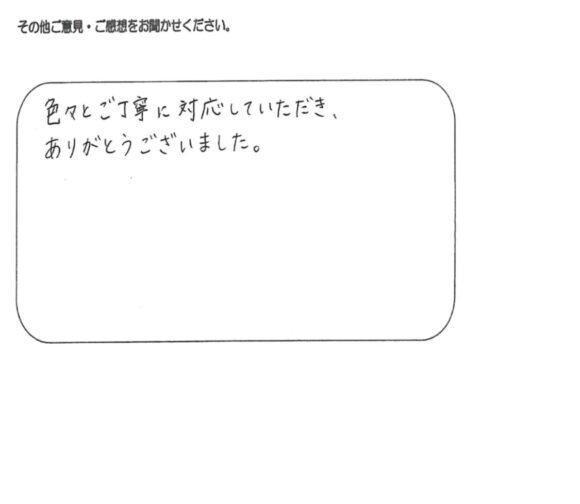 その他ご意見・ご感想をお聞かせください。
色々とご丁寧に対応していただき、
ありがとうございました。